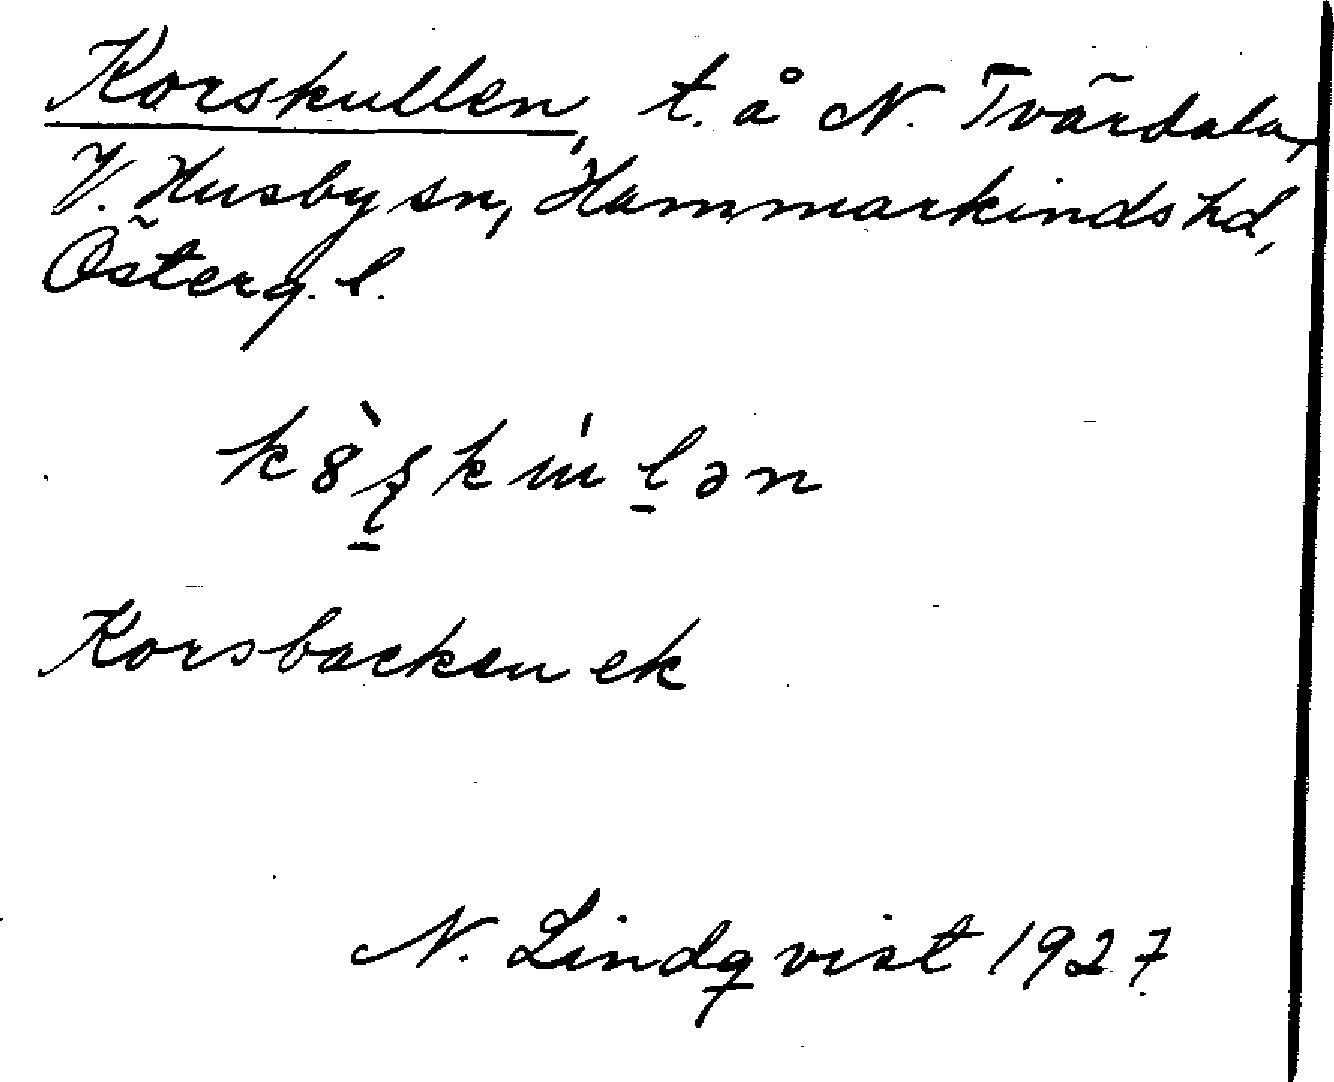 Korskullen, t. å N. Tvärdala,
V. Husby sn, Hammarkinds hd,
Österg. l.
Korsbacken ek
N. Lindqvist 1927